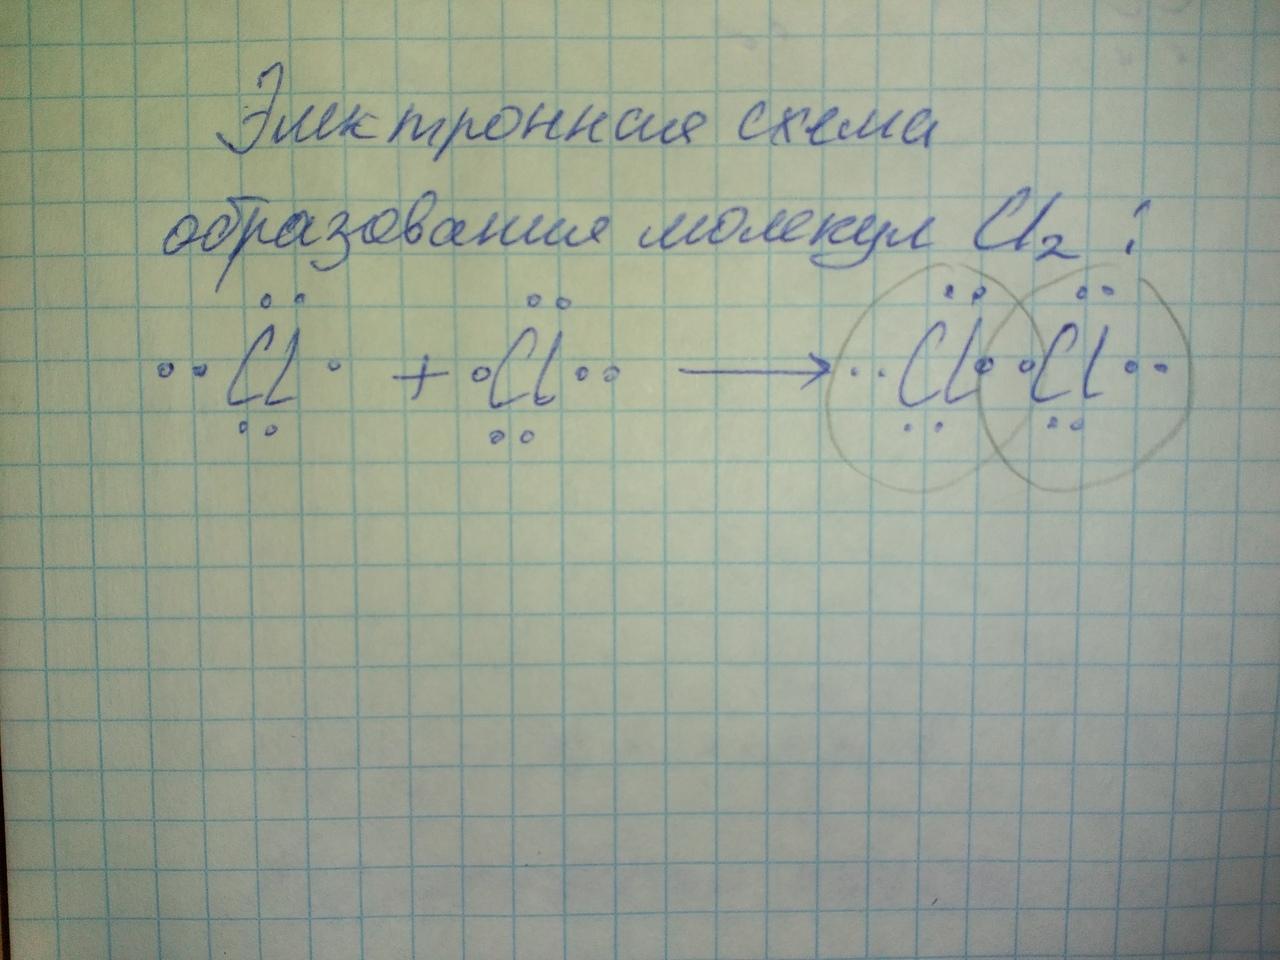 Электронная схема
образования молекул Cl₂:
Cl + Cl → Cl Cl